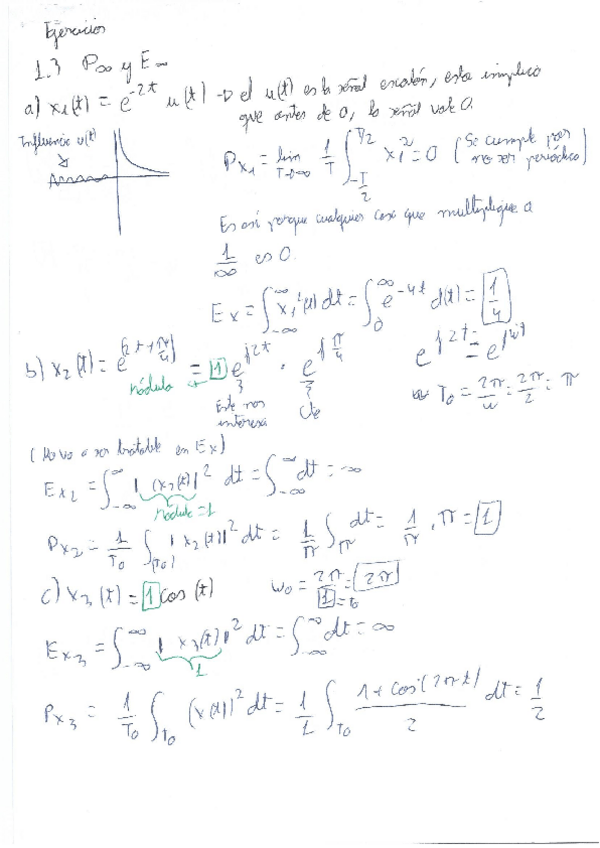 Ejercicios
1.3 P∞ y E∞
a) x₁(t) = e^{-2t} u(t) → el u(t) es la señal escalón, esto implica
que antes de 0, la señal vale 0.
Influencia u(t)
P_{x₁} = lim_{T→∞} 1/T ∫_{-T/2}^{T/2} x₁² = 0 (Se cumple por
no ser periódica)
Es así porque cualquier cosa que multiplique a
1/∞ es 0
E_x = ∫_{-∞}^{∞} x₁²(t) dt = ∫_0^∞ e^{-4t} d(t) = 1/4
b) x₂(t) = e^{j(2t+π/4)} = 1 e^{j2t} · e^{jπ/4}
módulo
Este nos
interesa
Cte
e^{j2t} = e^{jωt}
T₀ = 2π/ω = 2π/2 = π
(No va a ser tratable en Ex)
E_{x₂} = ∫_{-∞}^{∞} |x₂(t)|² dt = ∫_{-∞}^{∞} dt = ∞
módulo = 1
P_{x₂} = 1/T₀ ∫_{(T₀)} |x₂(t)|² dt = 1/π ∫_π dt = 1/π · π = 1
c) x₃(t) = 1 cos(t)
ω₀ = 2π/1 = 2π
= T₀
E_{x₃} = ∫_{-∞}^{∞} |x₃(t)|² dt = ∫_{-∞}^{∞} dt = ∞
1
P_{x₃} = 1/T₀ ∫_{T₀} (x(t))² dt = 1/1 ∫_{T₀} (1 + cos(2πt))/2 dt = 1/2